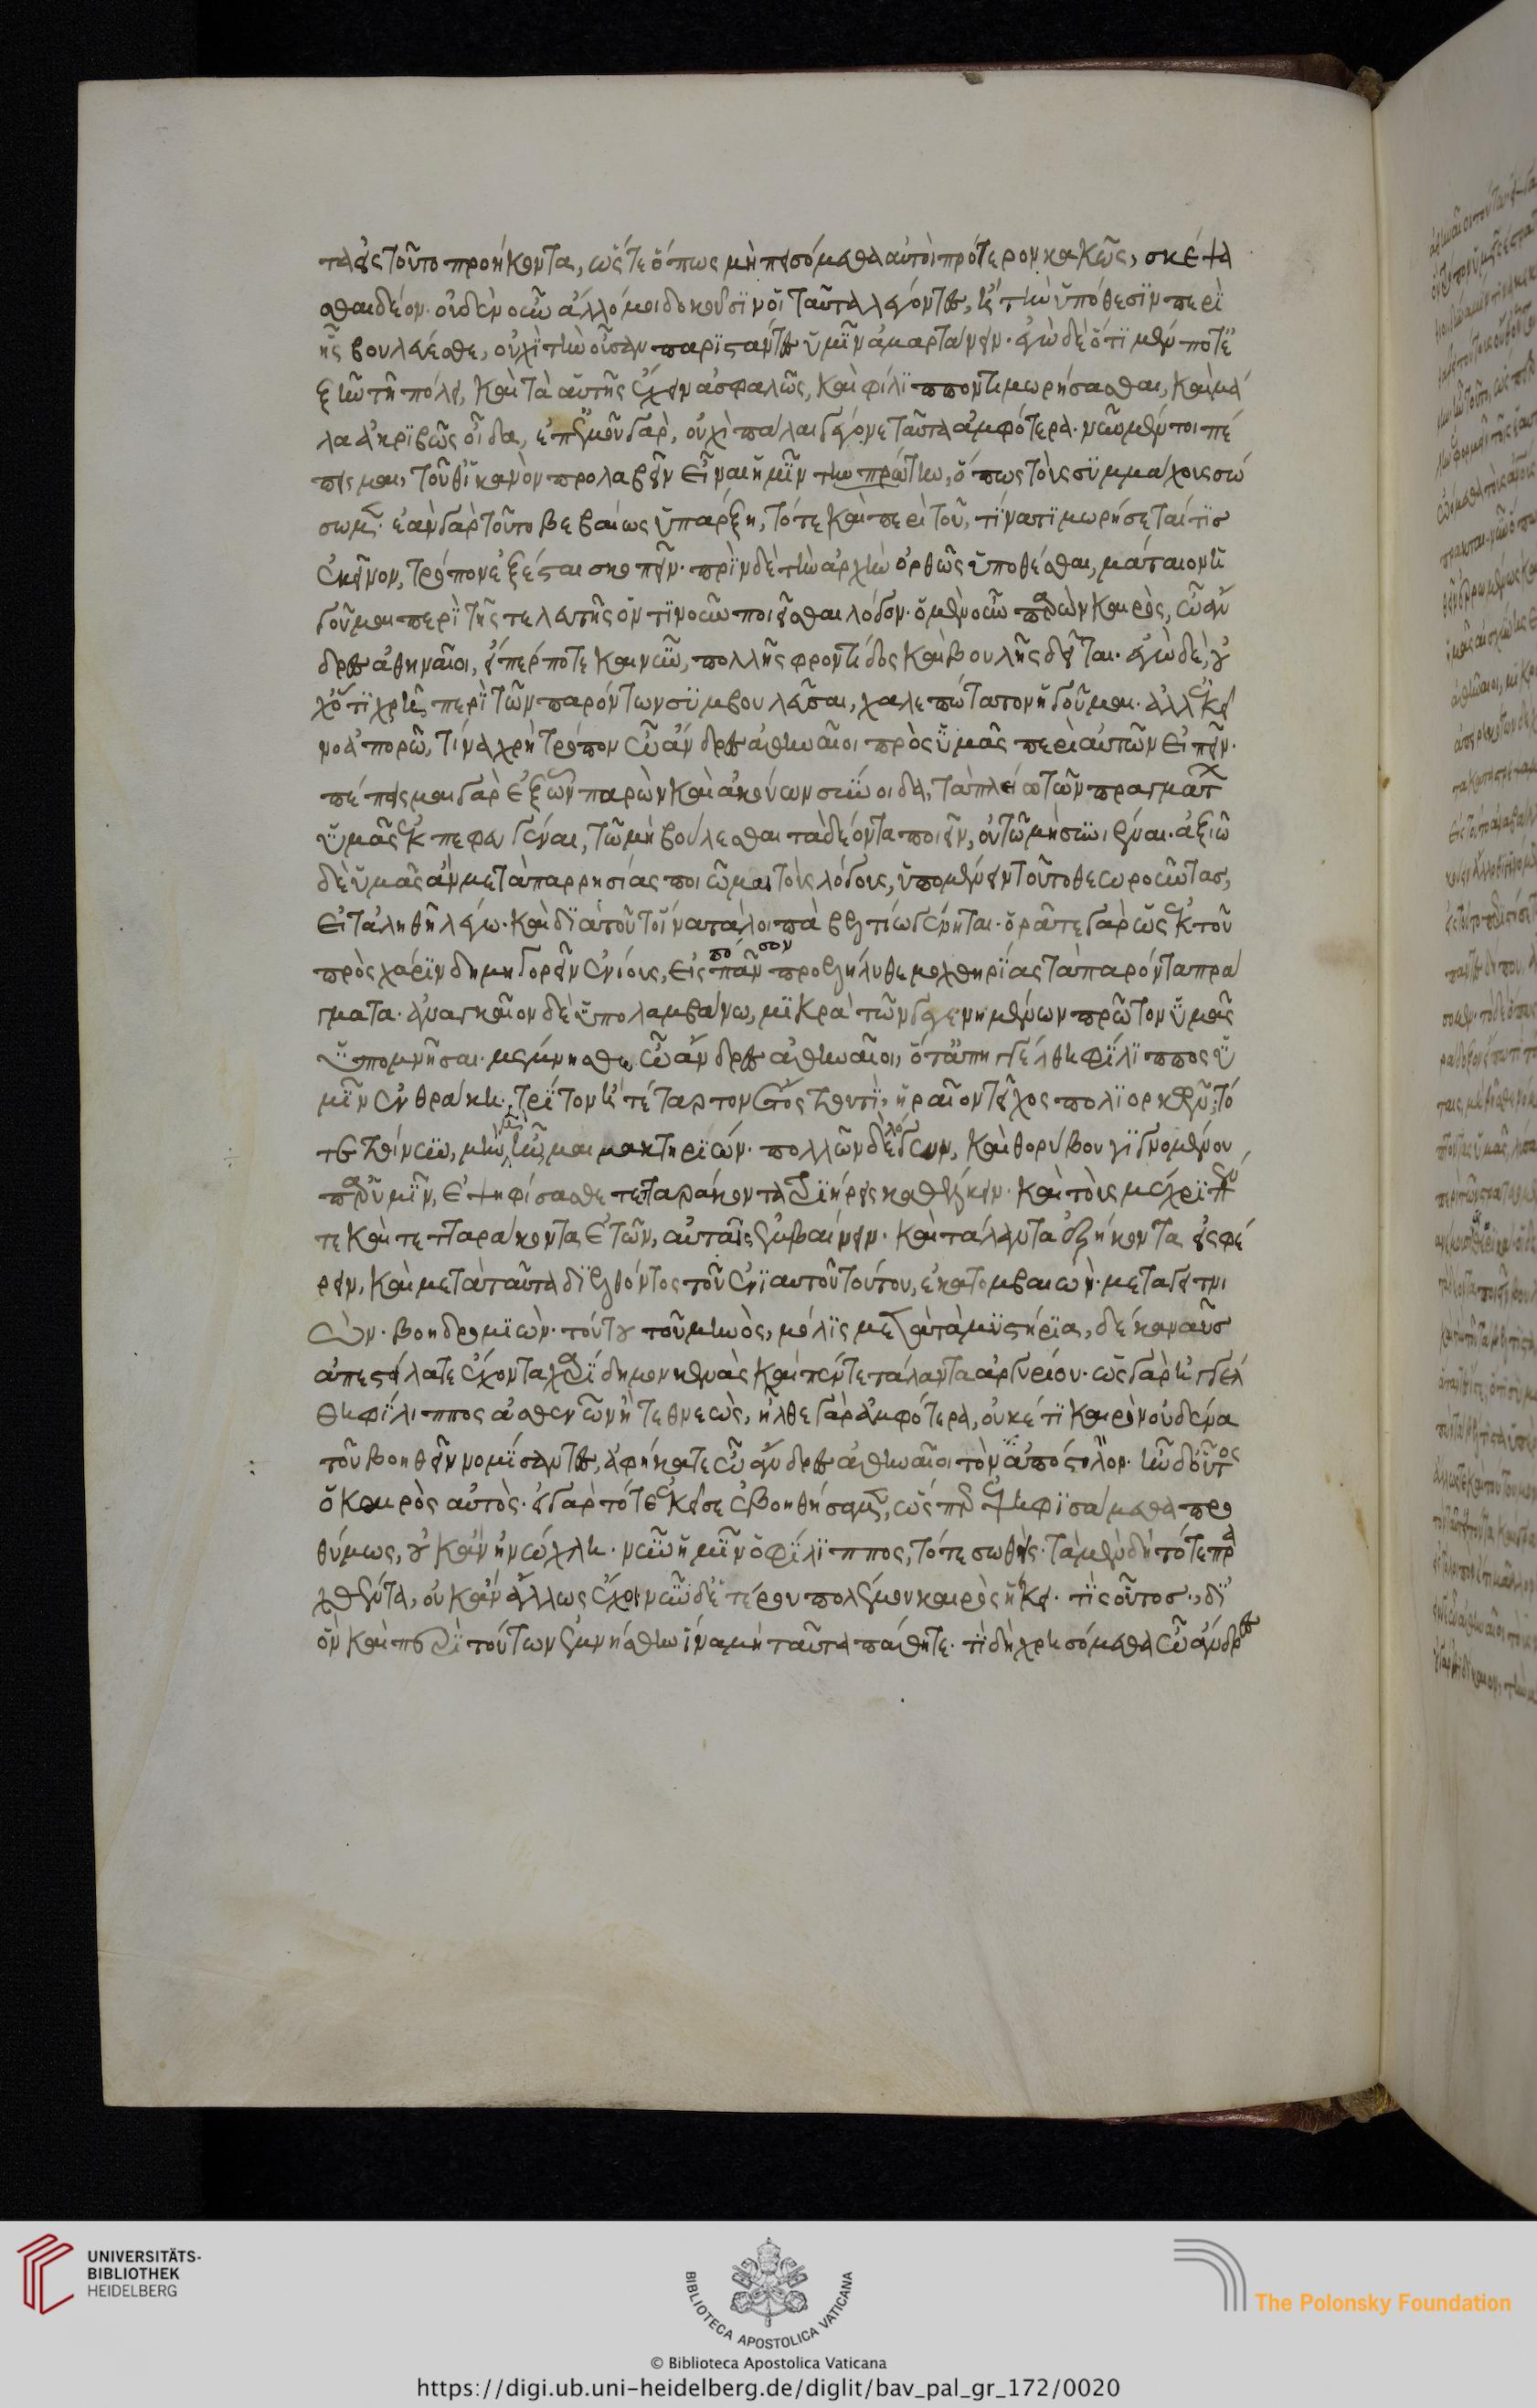 τα εἰς τοῦτο προήκοντα, ὥς τε ὅπως μὴ πεισόμεθα αὐτοὶ πρότερον κακῶς, σκέψα
σθαι δέον. οὐδὲν οὖν ἄλλο μοι δοκοῦσϊν οἱ ταῦτα λέγοντες, ἢ τὴν ὑπόθεσϊν περὶ
ἧς βουλεύεσθε, οὐχὶ τὴν οὖσαν παρϊστάντες ὑμῖν ἁμαρτάνειν. ἐγὼ δὲ ὅτι μέν ποτε
ξῆν τῇ πόλει, καὶ τὰ αὑτῆς ἔχειν ἀσφαλῶς, καὶ φίλιππον τιμωρήσασθαι, καὶ μά
λα ἀκριβῶς οἶδα, ἐπ' ἐμοῦ γὰρ, οὐχὶ πάλαι γέγονε ταῦτα ἀμφότερα. νῦν μέντοι πέ
πεισμαι, τοῦθ' ἱκανὸν προλαβεῖν εἶναι ἡμῖν τὴν πρώτην, ὅπως τοὺς συμμάχους σώ
σωμεν. ἐὰν γὰρ τοῦτο βεβαίως ὑπάρξη, τότε καὶ περὶ τοῦ, τίνα τιμωρήσεταί τις
ἐκεῖνον, τρόπον ἐξέσται σκοπεῖν. πρὶν δὲ τὴν ἀρχὴν ὀρθῶς ὑποθέσθαι, μάταιον ἡ
γοῦμαι περὶ τῆς τελευτῆς ὁντϊνοῦν ποιεῖσθαι λόγον. ὁ μὲν οὖν παρὼν καιρὸς, ὦ ἄν
δρες ἀθηναῖοι, εἴπέρ ποτε καὶ νῦν, πολλῆς φροντίδος καὶ βουλῆς δεῖται. ἐγὼ δὲ, οὐ
χ' ὅτι χρὴ περὶ τῶν παρόντων συμβουλεῦσαι, χαλεπώτατον ἡγοῦμαι. ἀλλ' ἐκεῖ
νο ἀπορῶ, τίνα χρὴ τρόπον ὦ ἄνδρες ἀθηναῖοι πρὸς ὑμᾶς περὶ αὐτῶν εἰπεῖν.
πέπεισμαι γὰρ ἐξ ὧν παρὼν καὶ ἀκούων σύνοιδα, τὰ πλείω τῶν πραγμάτων
ὑμᾶς ἐκπεφευγέναι, τῷ μὴ βούλεσθαι τὰ δέοντα ποιεῖν, οὐ τῷ μὴ συνιέναι. ἀξιῶ
δὲ ὑμᾶς ἂν μετὰ παρρησίας ποιῶμαι τοὺς λόγους, ὑπομένειν τοῦτο θεωροῦντας,
εἰ τἀληθῆ λέγω. καὶ δϊὰ τοῦτο ἵνα τὰ λοιπὰ βελτίω γένηται. ὁρᾶτε γὰρ ὡς ἐκ τοῦ
πρὸς χάριν δημηγορεῖν ἐνίους, εἰς πᾶν προελήλυθε μοχθηρίας τὰ παρόντα πρά
γματα. ἀναγκαῖον δὲ ὑπολαμβάνω, μικρὰ τῶν γεγενημένων πρῶτον ὑμᾶς
ὑπομνῆσαι. μέμνησθε ὦ ἄνδρες ἀθηναῖοι, ὅτ' ἀπηγγέλθη φίλιππος ὑ
μῖν ἐν θράκη, τρίτον ἢ τέταρτον ἔτος τουτὶ, ἡραῖον τεῖχος πολιορκῶν. τό
τε τοίνυν, μὴν μὲν ἦν μαιμακτηριών. πολλῶν δὲ λόγων, καὶ θορύβου γιγνομένου
παρ' ὑμῖν, ἐψηφίσασθε τετταράκοντα τριήρεις καθέλκειν. καὶ τοὺς μέχρι πέν
τε καὶ τετταράκοντα ἐτῶν, αὐτοὺς ἐμβαίνειν. καὶ τάλαντα ἑξήκοντα εἰσφέ
ρειν, καὶ μετὰ ταῦτα διελθόντος τοῦ ἐνιαυτοῦ τούτου, ἑκατομβαιών. μεταγειτνι
ών. βοηδρομϊών. τούτου τοῦ μηνὸς, μόλις μετὰ τὰ μυστήρια, δέκα ναῦς
ἀπεστείλατε ἔχοντα χαρίδημον κενὰς καὶ πέντε τάλαντα ἀργυρίου. ὡς γὰρ ἠγγέλ
θη φίλιππος ἀσθενῶν ἢ τεθνεὼς, ἦλθε γὰρ ἀμφότερα, οὐκέτι καιρὸν οὐδένα
τοῦ βοηθεῖν νομίσαντες, ἀφήκατε ὦ ἄνδρες ἀθηναῖοι τὸν ἀπόστολον. ἦν δ' οὗτος
ὁ καιρὸς αὐτός. εἰ γὰρ τότε ἐκεῖσε ἐβοηθήσαμεν, ὥσπερ ἐψηφισάμεθα προ
θύμως, οὐκ ἂν ἠνώχλει νῦν ἡμῖν ὁ φίλιππος, τότε σωθείς. τὰ μὲν δὴ τότε πρα
χθέντα, οὐκ ἂν ἄλλως ἔχοι νῦν δ' ἑτέρου πολέμου καιρὸς ἥκει τις οὗτος, δι'
ὃν καὶ περὶ τούτων ἐμνήσθην ἵνα μὴ ταῦτα πάθητε. τί δὴ χρησόμεθα ὦ ἄνδρες
πό σον
UNIVERSITÄTS-
BIBLIOTHEK
HEIDELBERG
BIBLIOTECA APOSTOLICA VATICANA
The Polonsky Foundation
© Biblioteca Apostolica Vaticana
https://digi.ub.uni-heidelberg.de/diglit/bav_pal_gr_172/0020